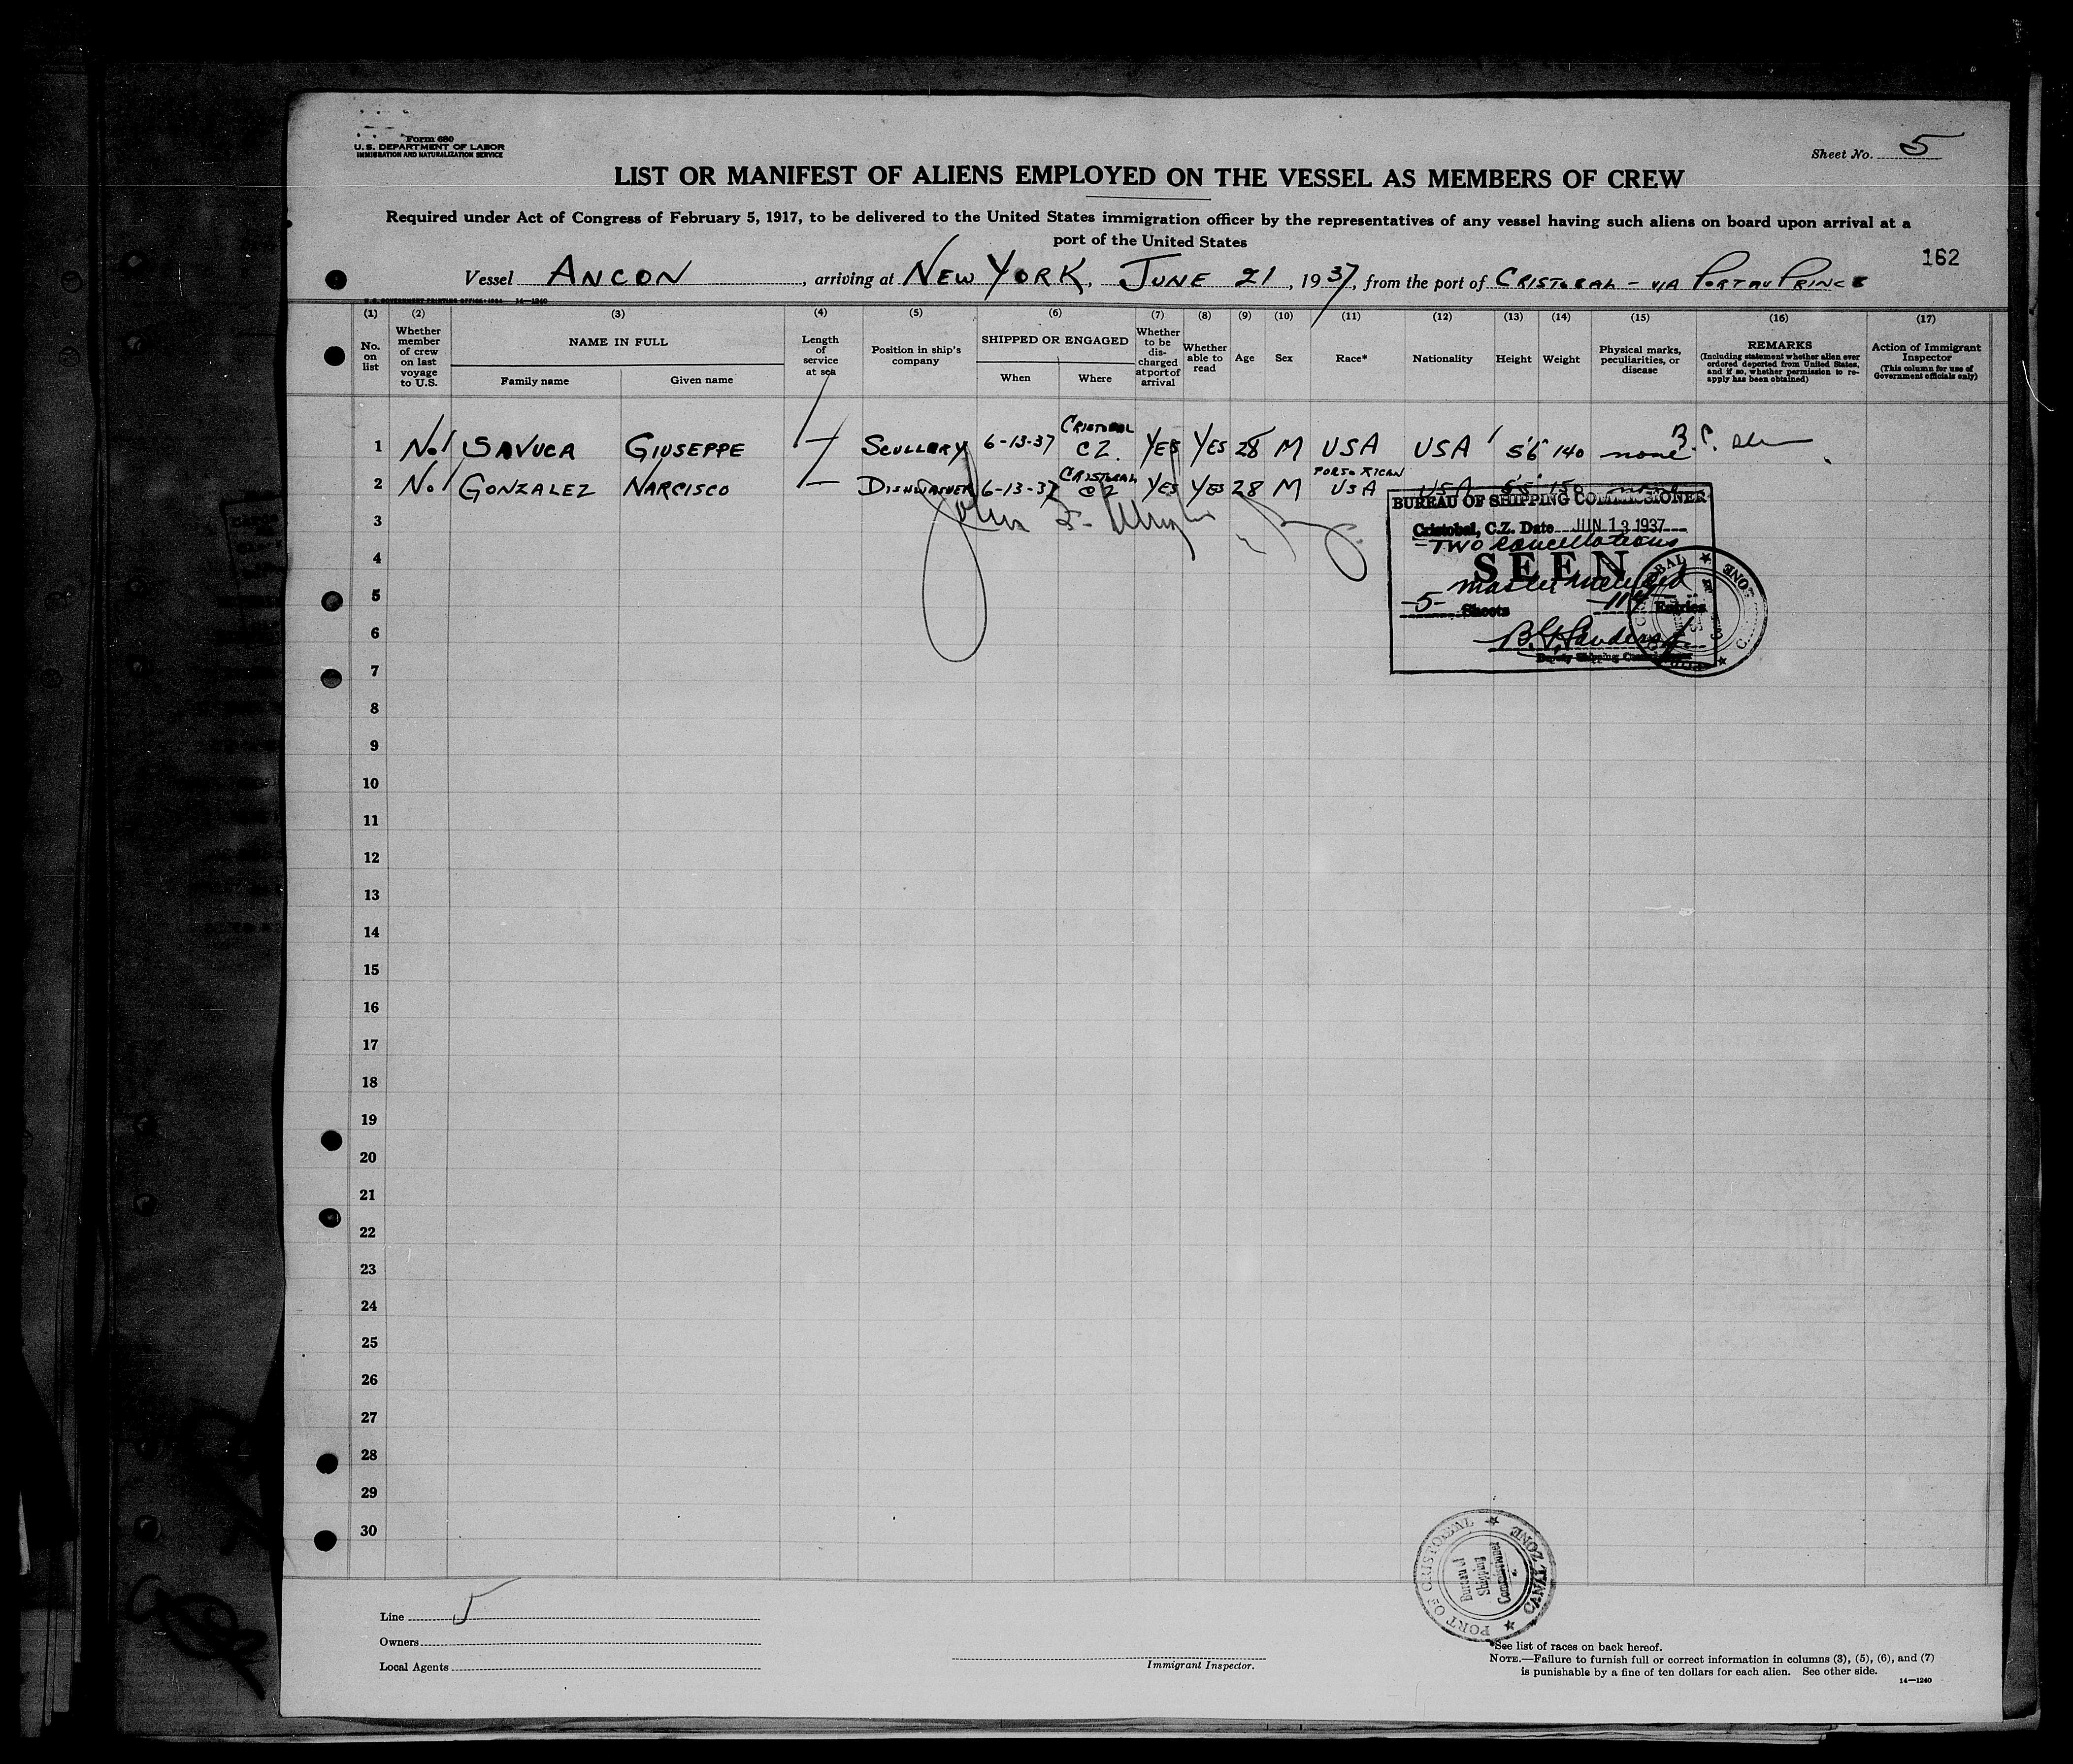 Form 680
U.S. DEPARTMENT OF LABOR
IMMIGRATION AND NATURALIZATION SERVICE
Sheet No. 5
LIST OR MANIFEST OF ALIENS EMPLOYED ON THE VESSEL AS MEMBERS OF CREW
Required under Act of Congress of February 5, 1917, to be delivered to the United States immigration officer by the representatives of any vessel having such aliens on board upon arrival at a
port of the United States
162
Vessel ANCON, arriving at NEW YORK, JUNE 21, 1937, from the port of CRISTOBAL - VIA PORT AU PRINCE
U.S. GOVERNMENT PRINTING OFFICE: 1934 14—1240
(1) (2) (3) (4) (5) (6) (7) (8) (9) (10) (11) (12) (13) (14) (15) (16) (17)
No. on list
Whether member of crew on last voyage to U.S.
NAME IN FULL
Family name
Given name
Length of service at sea
Position in ship's company
SHIPPED OR ENGAGED
When
Where
Whether to be discharged at port of arrival
Whether able to read
Age
Sex
Race*
Nationality
Height
Weight
Physical marks, peculiarities, or disease
REMARKS
(Including statement whether alien ever ordered deported from United States, and if so, whether permission to reapply has been obtained)
Action of Immigrant Inspector
(This column for use of Government officials only)
1 No SAVUCA GIUSEPPE SCULLERY 6-13-37 CRISTOBAL CZ. YES YES 28 M USA USA 5'6" 140 none B.C.
2 No GONZALEZ NARCISCO DISHWASHER 6-13-37 CRISTOBAL CZ YES YES 28 M PORTO RICAN USA USA 5'5" 150 none
3
4
5
6
7
8
9
10
11
12
13
14
15
16
17
18
19
20
21
22
23
24
25
26
27
28
29
30
BUREAU OF SHIPPING COMMISSIONER
Cristobal, C.Z. Date JUN 13 1937
-TWO cancellations
SEEN
master included
-5- Sheets -114- Entries
Deputy Shipping Commissioner
PORT OF CRISTOBAL ★ CANAL ZONE ★
Bureau of
Shipping
Commissioner
Line
Owners
Local Agents
Immigrant Inspector.
*See list of races on back hereof.
NOTE.—Failure to furnish full or correct information in columns (3), (5), (6), and (7)
is punishable by a fine of ten dollars for each alien. See other side.
14—1240